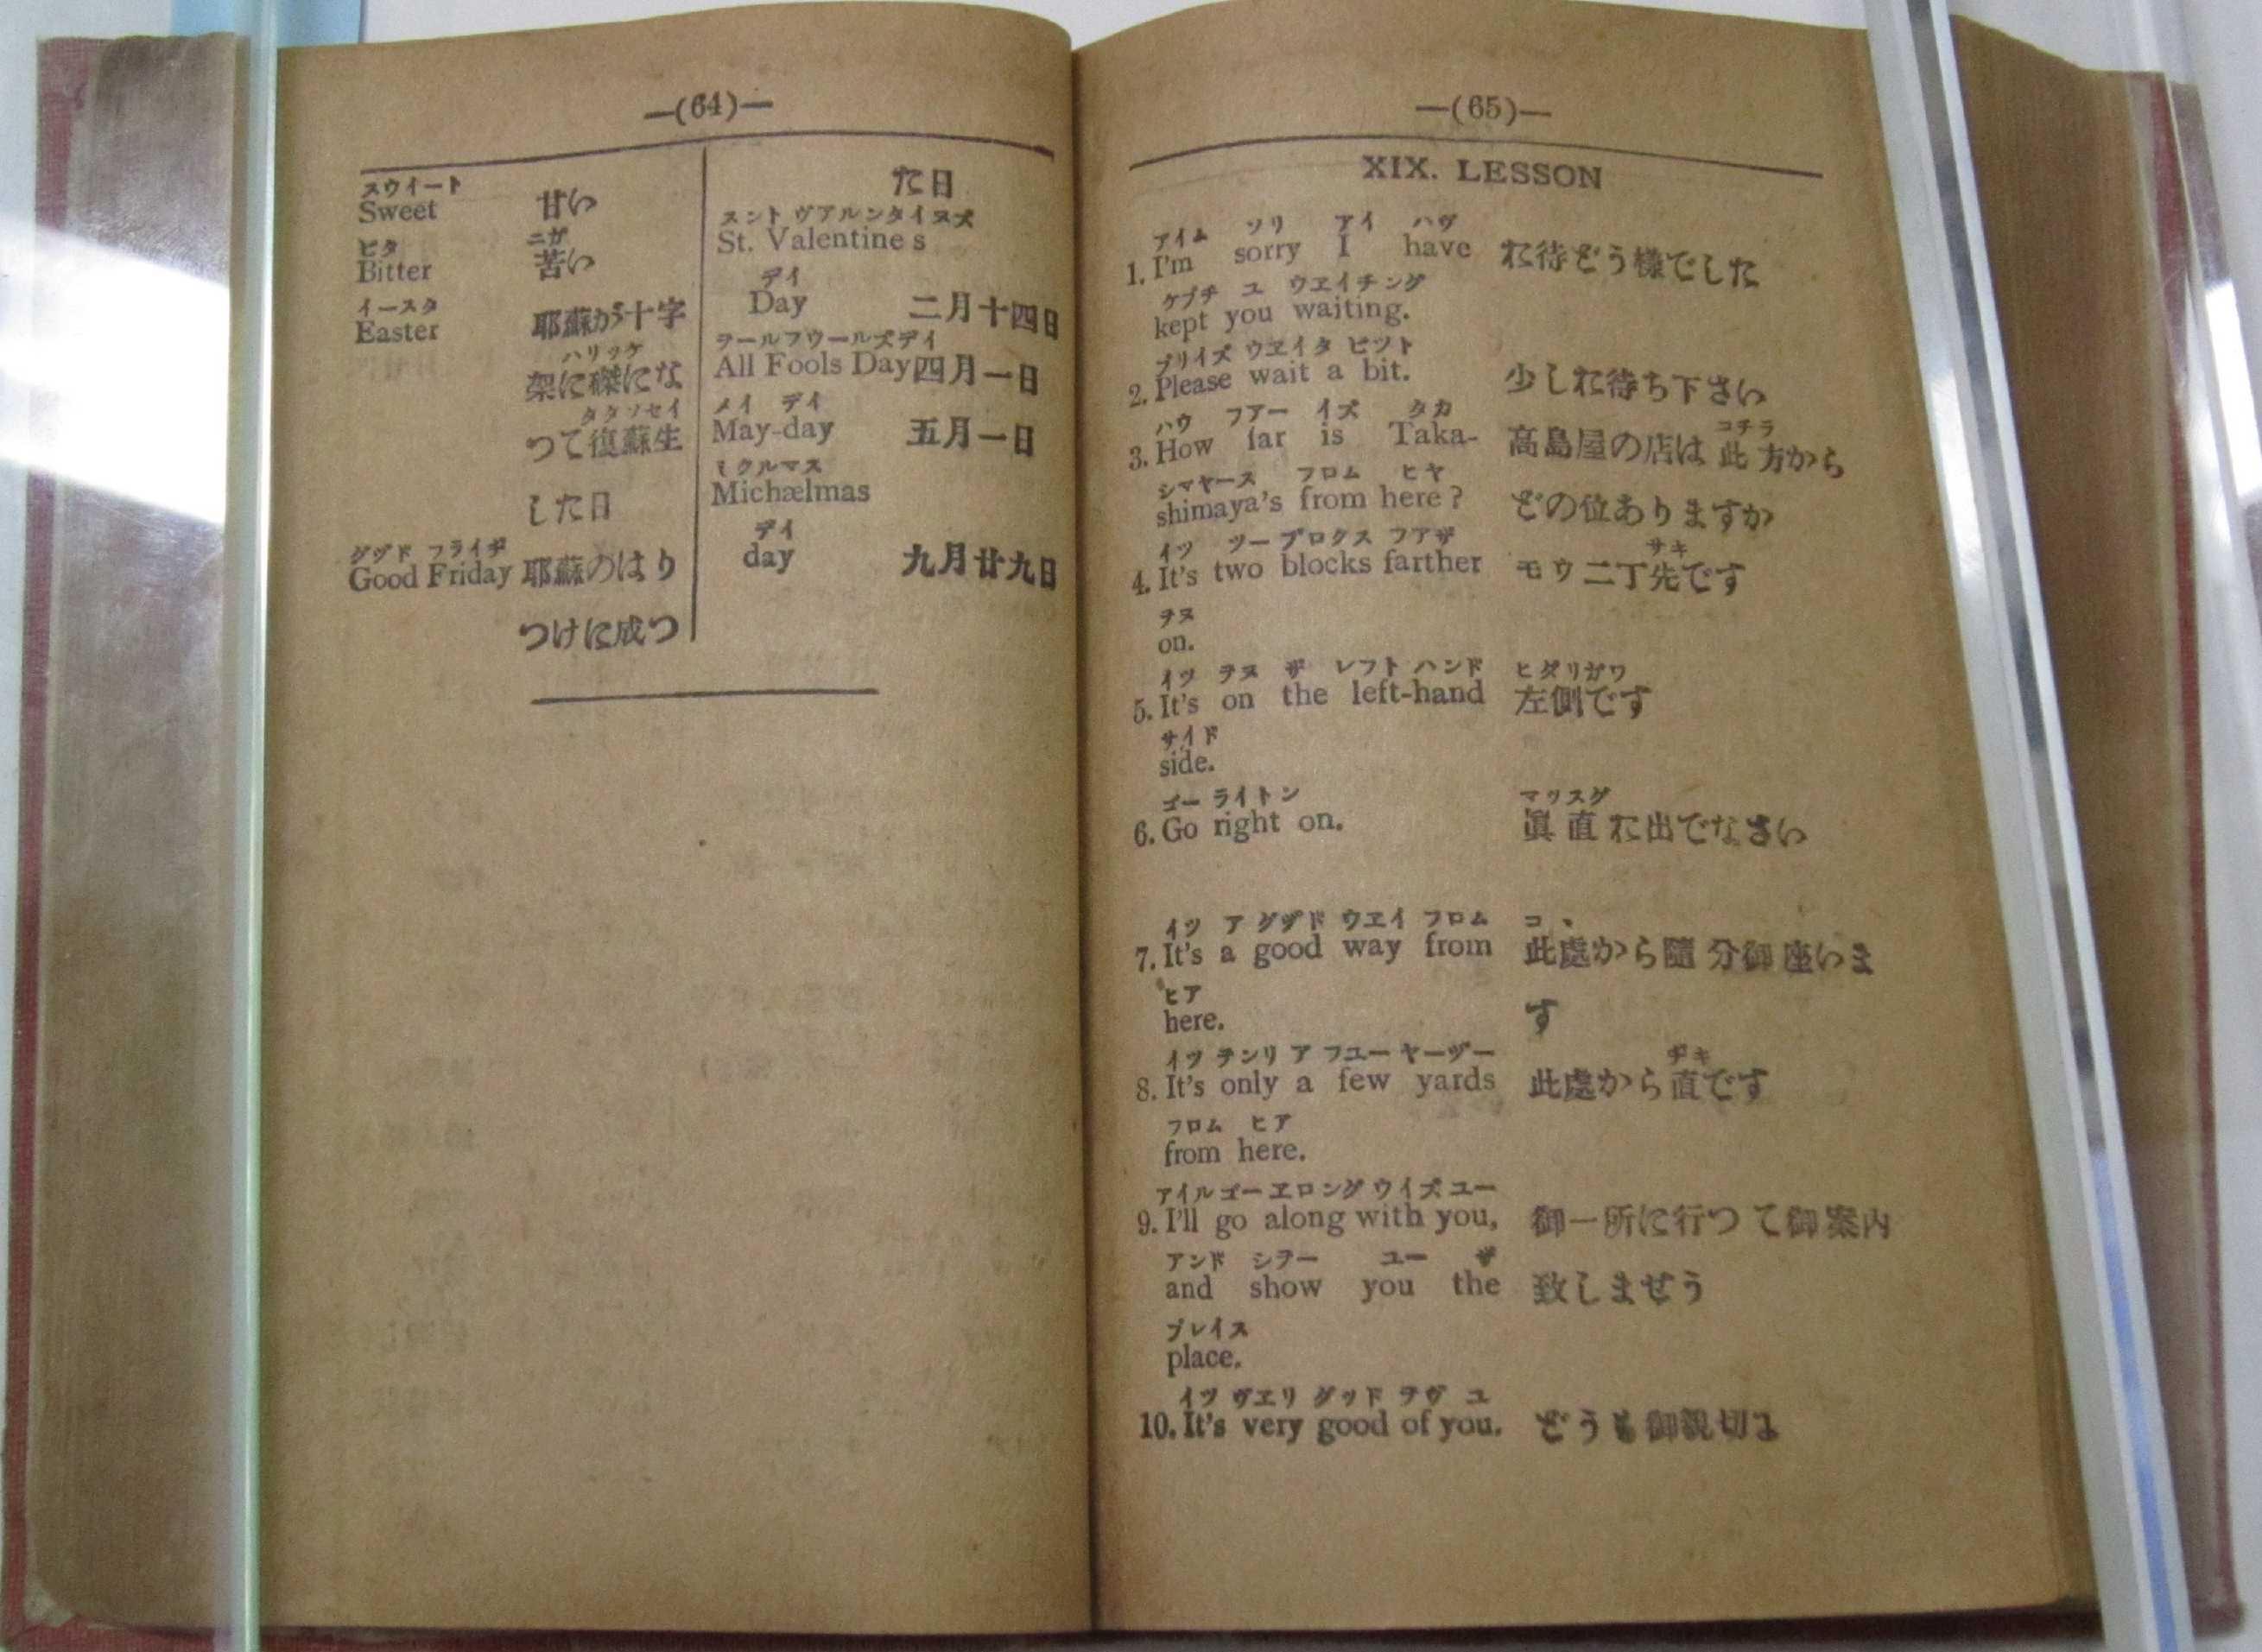 —(64)—
スウイート
Sweet 甘い
ビタ ニガ
Bitter 苦い
イースタ
Easter 耶蘇が十字
ハリツケ
架に磔にな
タタソセイ
つて復蘇生
した日
グヅド フライヂ
Good Friday 耶蘇のはり
つけに成つ
た日
スント ヴアルンタイヌズ
St. Valentine s
デイ
Day 二月十四日
ヲールフウールズデイ
All Fools Day 四月一日
メイ デイ
May-day 五月一日
ミクルマス
Michælmas
デイ
day 九月廿九日
—(65)—
XIX. LESSON
アイム ソリ アイ ハヴ
1. I'm sorry I have お待どう様でした
ケプチ ユ ウヱイチング
kept you waiting.
プリイズ ウヱイタ ビツト
2. Please wait a bit. 少しお待ち下さい
ハウ フアー イズ タカ コチラ
3. How far is Taka- 高島屋の店は此方から
シマヤース フロム ヒヤ
shimaya's from here? どの位ありますか
イツ ツー ブロクス フアザ サキ
4. It's two blocks farther モウ二丁先です
ヲヌ
on.
イツ ヲヌ ザ レフト ハンド ヒダリガワ
5. It's on the left-hand 左側です
サイド
side.
ゴー ライトン マツスグ
6. Go right on. 眞直お出でなさい
イツ ア グヅド ウヱイ フロム コヽ
7. It's a good way from 此處から隨分御座いま
ヒア
here. す
イツ ヲンリ ア フユー ヤーヅー ヂキ
8. It's only a few yards 此處から直です
フロム ヒア
from here.
アイル ゴー ヱロング ウイズ ユー
9. I'll go along with you, 御一所に行つて御案内
アンド シヲー ユー ザ
and show you the 致しませう
プレイス
place.
イツ ヴエリ グッド ヲヴ ユ
10. It's very good of you. どうも御親切よ